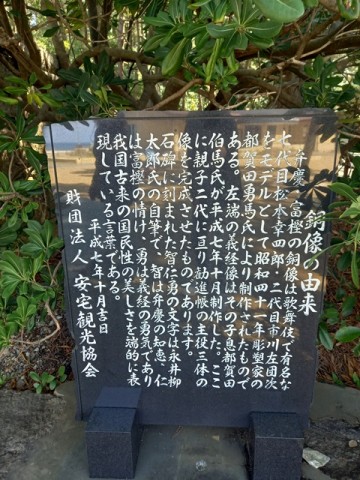 銅像の由来
弁慶、富樫の銅像は歌舞伎で有名な
七代目松本幸四郎・二代目市川左団次
をモデルとして昭和四十一年彫塑家の
都賀田勇馬氏により制作されたもので
ある。左端の義経像はその子息都賀田
伯馬氏が平成七年十月制作した。ここ
に親子二代に亘り勧進帳の主役三体の
像を完成させたものであります。
石碑に刻まれた智仁勇の文字は永井柳
太郎氏の自筆で、智は弁慶の知恵、仁
は富樫の情け、勇は義経の勇気であり
我国古来の国民性の美しさを端的に表
現している言葉である。
平成七年十月吉日
財団法人 安宅観光協会